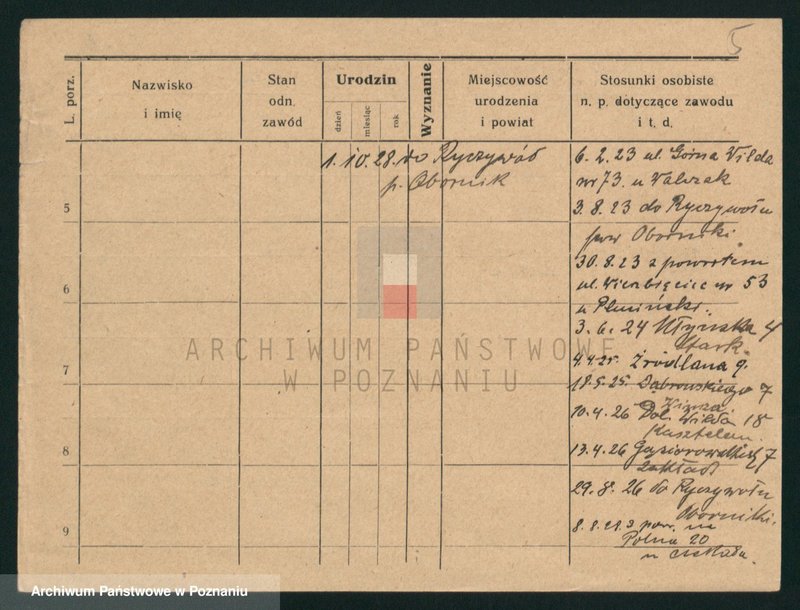 5
L. porz.
Nazwisko
i imię
Stan
odn.
zawód
Urodzin
dzień
miesiąc
rok
Wyznanie
Miejscowość
urodzenia
i powiat
Stosunki osobiste
n. p. dotyczące zawodu
i t. d.
1. 10. 28. do Ryczywół
p. Obornik
6. 2. 23 ul. Górna Wilda
nr 73. u Walczak
3. 8. 23 do Ryczywołu
pow Oborniki.
30. 8. 23 z powrotem
ul. Wierzbięcice nr 53
u
3. 6. 24 4
4.4.25. Źródlana 9.
18.5.25. Dąbrowskiego 7
10. 4. 26 Dol. Wilda 18
Kasztelan.
13. 4. 26 Gąsiorowskich 7
zakład
29. 8. 26 do Ryczywołu
Oborniki.
8. 8. pow. na
Polna 20
u
5
6
7
8
9
ARCHIWUM PAŃSTWOWE
W POZNANIU
Archiwum Państwowe w Poznaniu